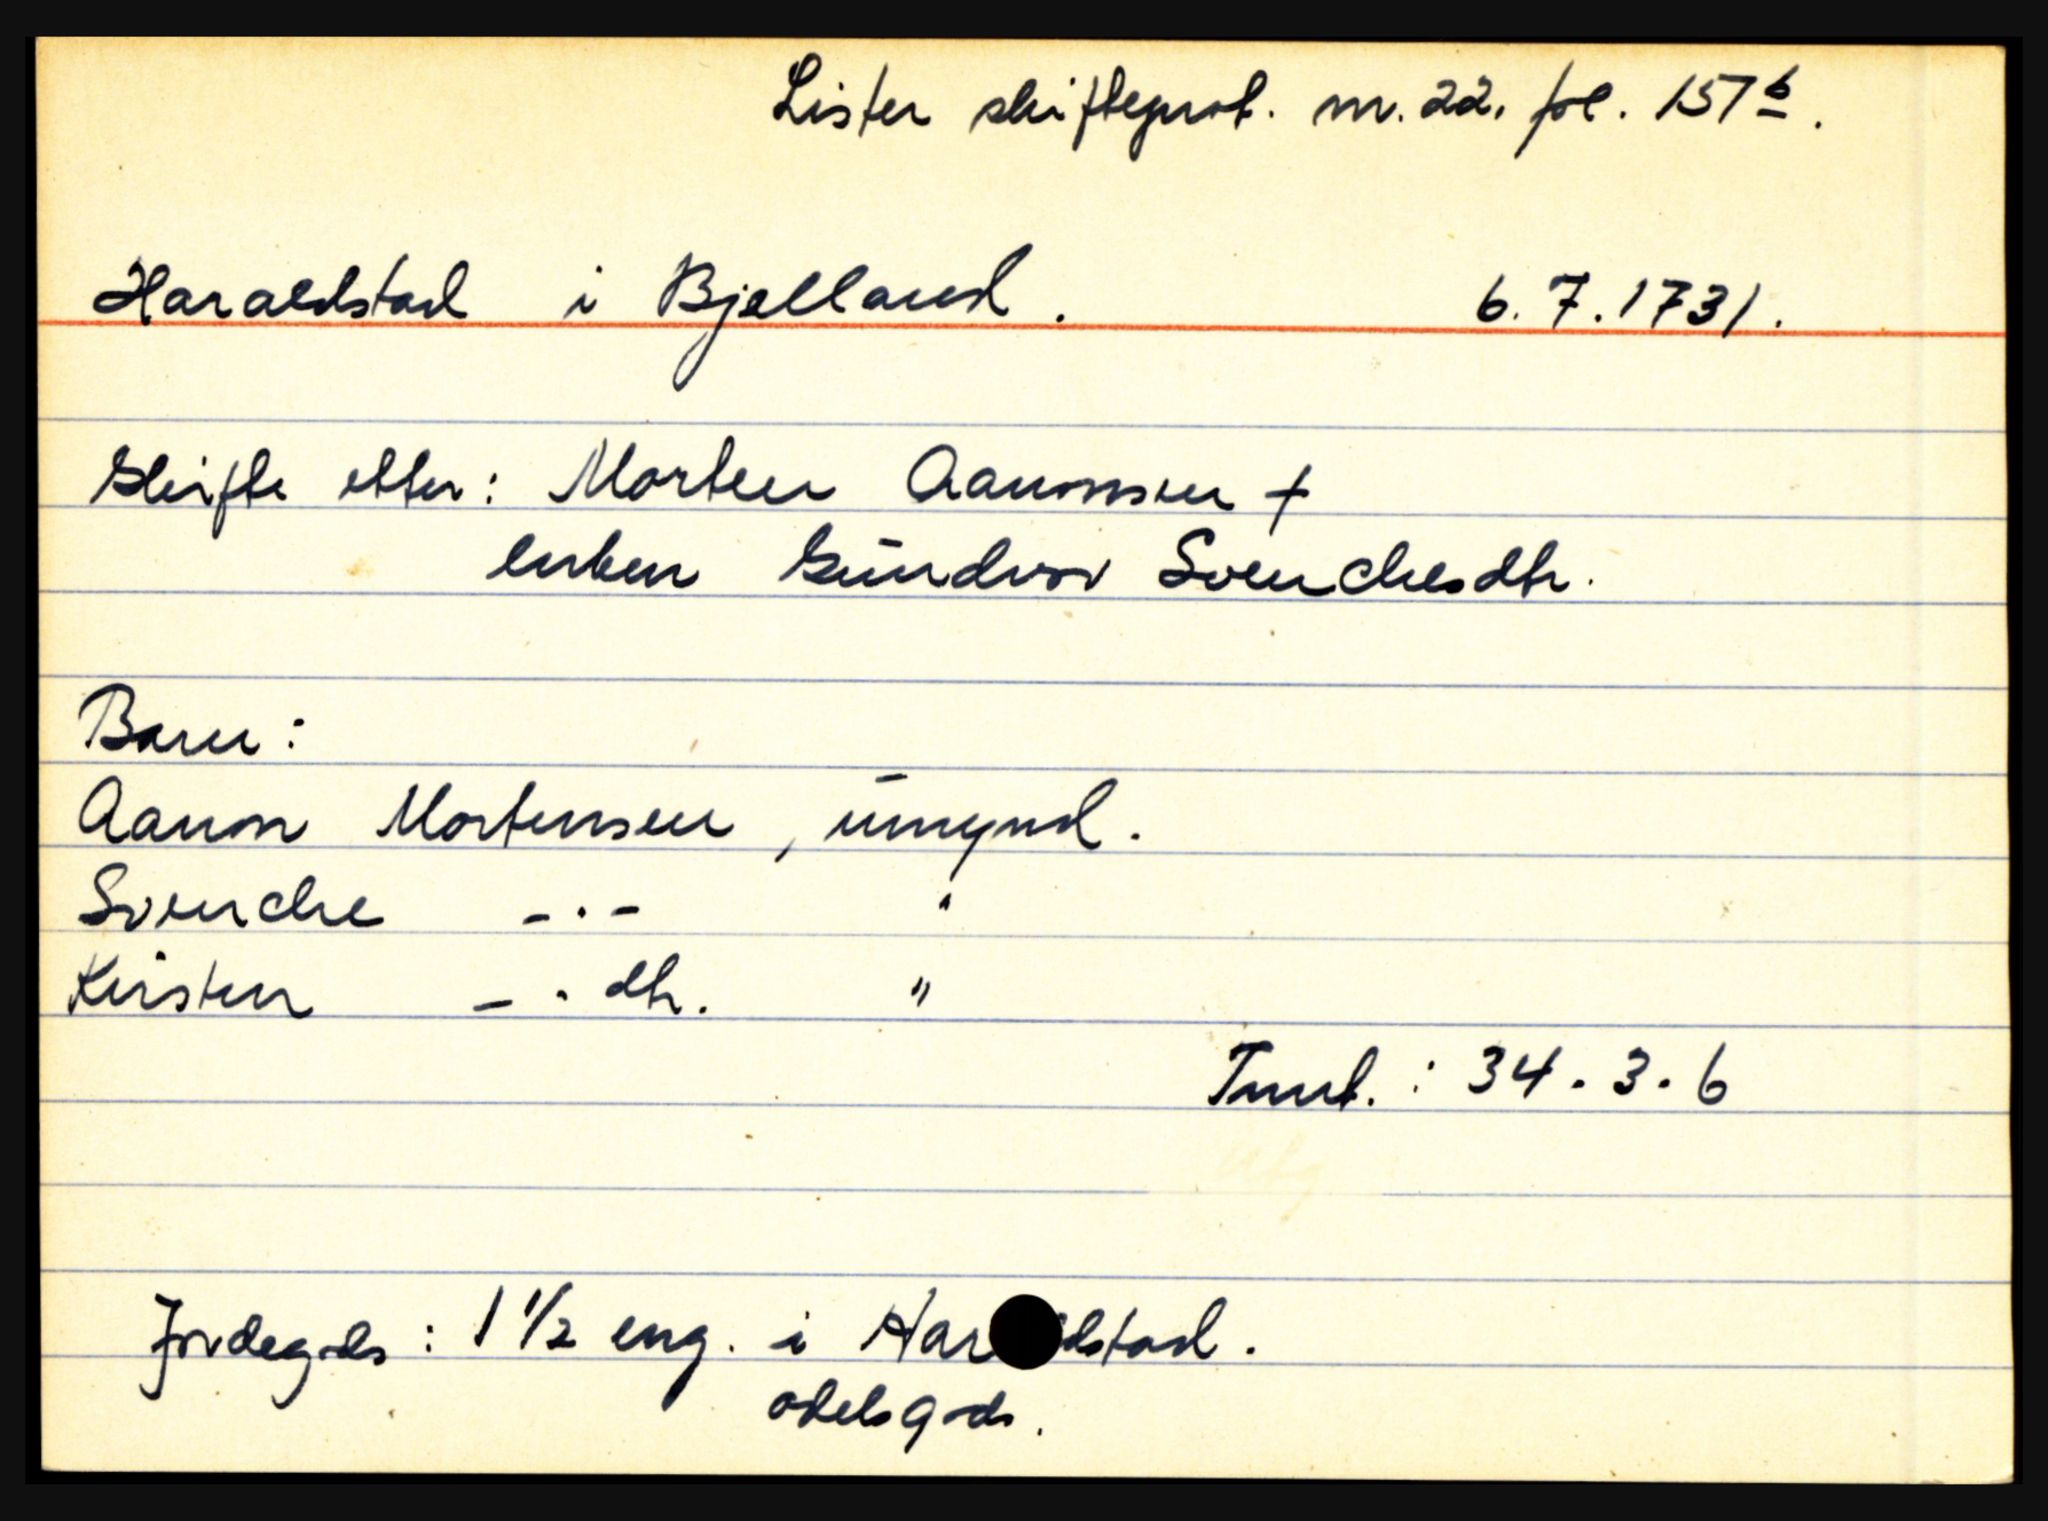 Lister skifteprot. nr. 22. fol. 157 b.
Haraldstad i Bjelland. 6.7.1731.
Skifte etter: Morten Aanonsen +
enken Gundvor Svenchesdtr.
Barn:
Aanon Mortensen, umynd.
Svenche -·- "
Kirsten -·dtr. "
Brut.: 34.3.6
Jordegods: 1 1/2 eng. i Haraldstad.
odelsgods.